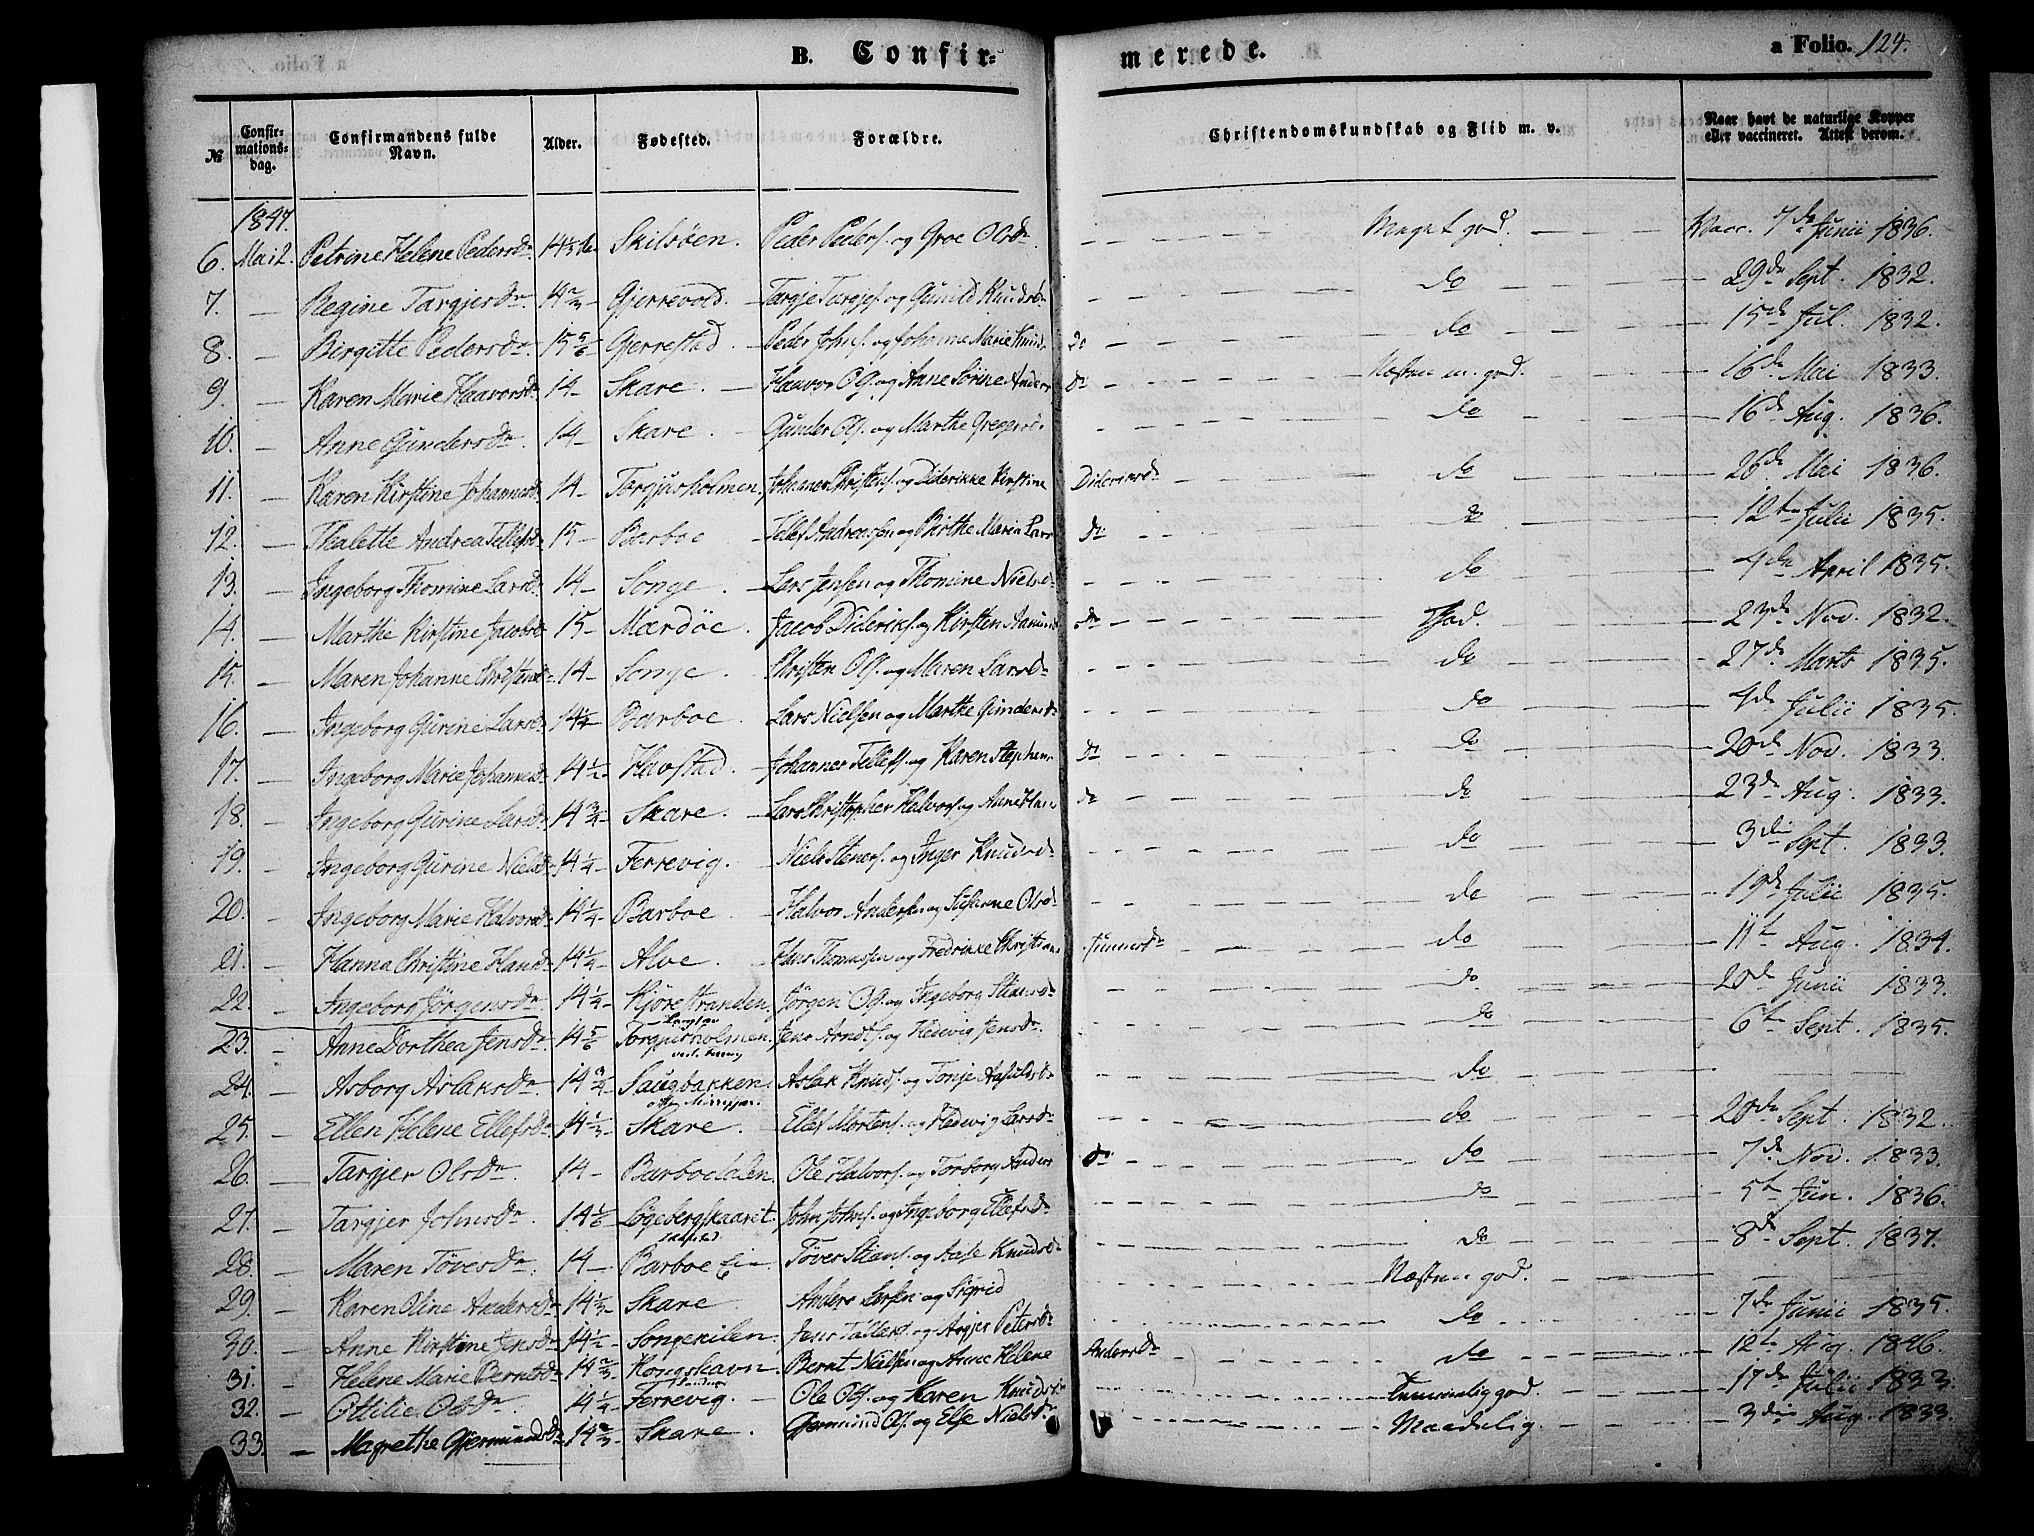 B. Confir=
merede.
a Folio. 124.
№
Confir=
mations=
dag.
Confirmandens fulde
Navn.
Alder.
Fødested.
Forældre.
Christendomskundskab og Flid m. v.
Naar havt de naturlige Kopper
eller vaccineret. Attest derom.
1847.
6. Mai 2. Petrine Helene Pedersdr. Skilsöen. Peder Peders. og Groe Olsdr. Meget god. Vacc. 7de Junii 1836.
7. — Regine Targjersdr. 14 2/3 Gjerrevold. Targje Targjes. og Gunild Knudsdr. do 29de Sept. 1832.
8. — Birgitte Pedersdr. 15 5/6 Gjerrestad. Peder Johns. og Johanne Marie Knudsdr. do 15de Jul. 1832.
9. — Karen Marie Haavorsdr. 14 Skare. Haavor Ols. og Anne Sörine Andersdr. Næsten m. god. 16de Mai 1833.
10. — Anne Gundersdr. 14 Skare. Gunder Ols. og Marthe Gregersdr. do 16de Aug. 1836.
11. — Karen Kirstine Johannesdr. 14 Torgjusholmen. Johannes Christens. og Diderikke Kirstine Dideriksdr. do 26de Mai 1836.
12. — Thalette Andrea Tellefsdr. 15 Barboe Tellef Andreassen og Birthe Maria Larsdr. do 12te Julii 1835.
13. — Ingeborg Thomine Larsdr. 14 Songe. Lars Jensen og Thomine Nielsdr. do 4de April 1835.
14. — Marthe Kirstine Jacobsdr. 15 Mærdöe. Jacob Dideriks. og Kirsten Aamundsdr. God. 23de Nov. 1832.
15. — Maren Johanne Christensdr. 14 Songe. Christen Ols. og Maren Larsdr. do 27de Marts 1835.
16. — Ingeborg Gurine Larsdr. 14 1/4 Barboe. Lars Nielsen og Marthe Gundersdr. do 4de Julii 1835.
17. — Ingeborg Marie Johannesdr. 14 1/2 Havstad. Johannes Tellefs. og Karen Stephensdr. do 20de Nov. 1833.
18. — Ingeborg Gurine Larsdr. 14 3/4 Skare. Lars Christopher Halvors. og Anne Hansdr. do 23de Aug. 1833.
19. — Ingeborg Gurine Nielsdr. 14 1/4 Ferrevig. Niels Steners. og Inger Knudsdr. do 3die Sept. 1833.
20. — Ingeborg Marie Halvorsdr. 14 1/4 Barboe. Halvor Andersen og Susanne Olsdr. do 19de Julii 1835.
21. — Hanna Christine Hansdr. 14 1/4 Alve. Hans Thomassen og Fredrikke Christiane do 11te Aug. 1834.
22. — Ingeborg Jörgensdr. 14 1/4 Kjörestranden. Jörgen Ols. og Ingeborg do 20de Junii 1833.
23. — Anne Dorthea Jensdr. 14 5/6 Torgjusholmen. Jens Arndts. og Hedvig Jensdr. do 6te Sept. 1835.
24. — Asborg Aslaksdr. 14 Saugbakken. Aslak Knuds. og Tonje do
25. — Ellen Helene Ellefsdr. 14 1/3 Skare. Ellef Mortens. og Hedevig Larsdr. do 20de Sept. 1832.
26. — Targjer Olsdr. 14 Barboedalen. Ole Halvors. og Torborg Andersdr. do 7de Nov. 1833.
27. — Targjer Johnsdr. 14 1/6 Lögebergskaaret. John Johns. og Ingeborg Ellefsdr. do 5te Jun. 1836.
28. — Maren Töversdr. 14 Barboe Töver Stians. og Aase Knudsdr. do 8de Sept. 1837.
29. — Karen Oline Andersdr. 14 1/3 Skare. Anders Larsen og Sigrid Næsten god.
30. — Anne Kirstine Jensdr. 14 1/2 Songekilen. Jens og Asgjer Petersdr. do 7de Junii 1835.
31. — Helene Marie Berntsdr. 14 2/3 Kongshavn. Bernt Nielsen og Anne Helene Andersdr. do 12te Aug. 1846.
32. — Ottilie Olsdr. 14 1/4 Ferrevig. Ole Ols. og Karen Knudsdr. Temmelig god. 17de Julii 1833.
33. — Magrethe Gjermundsdr. 14 2/3 Skare. Gjermund Ols. og Else Nielsdr. Maadelig. 3die Aug. 1833.